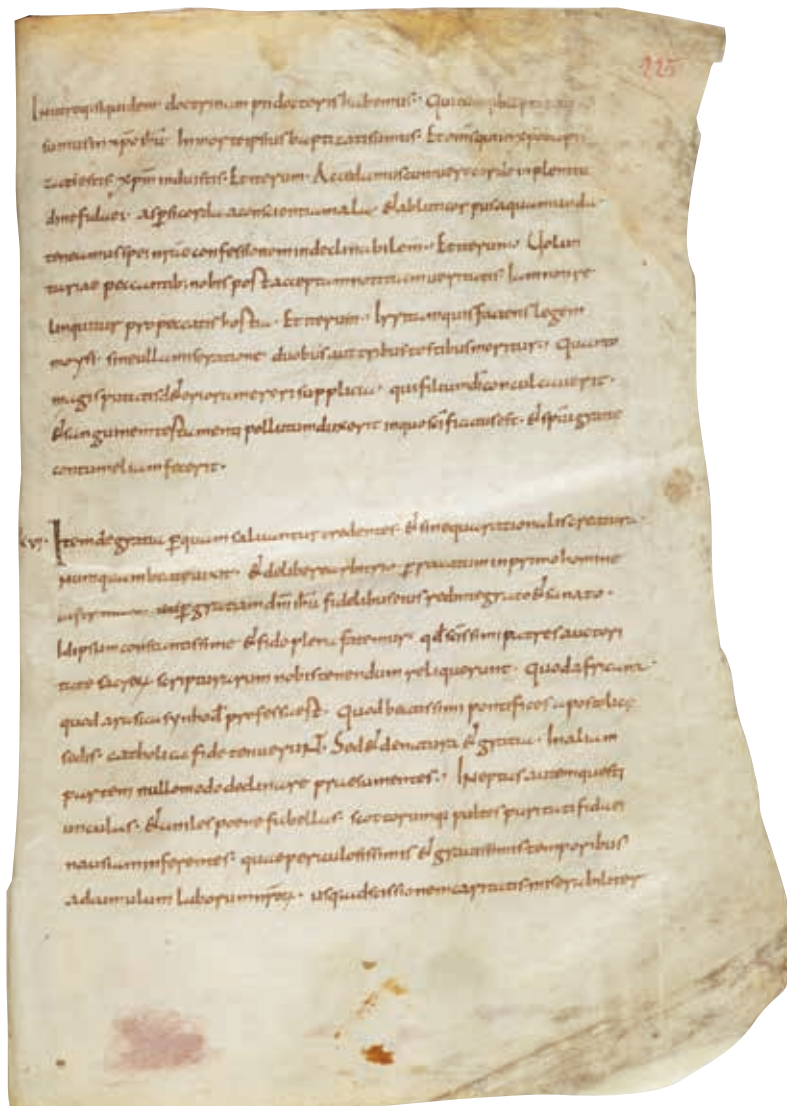 In utroq; siquidem doctrinam pii doctoris habemus· Quicumq; baptizati
sumus in xpo ihu In morte ipsius baptizati sumus· Et oms qui in xpo bapti
zati estis xpm induistis· Et iterum· Accedamus cum vero corde in plenitu
dine fidei· aspsi corda a conscientia mala· et abluti corpus aqua munda·
teneamus spei nrae confessionem indeclinabilem· Et iterum· Volun
tariae peccantib; nobis post acceptam notitiam veritatis Iam non re
linquitur pro peccatis hostia· Et iterum· Irritam quis faciens legem
moysi· sine ulla miseratione duobus aut tribus testibus moritur· Quanto
magis putatis deteriora mereri supplicia· qui filium di conculcaverit·
et sanguinem testamenti pollutum duxerit in quo scificatus est· et spui gratiae
contumeliam fecerit·
Item de gratia p quam salvantur credentes· et sine qua rationalis creatura
Nunquam beate vixit· et de libero arbitrio pravatum in primo homine
p gratiam dni ihu fidelibus eius redintegrato et sanato·
Id ipsum constantissime et fide plena fatemur qd scissimi patres auctori
tate sacrarum scripturarum nobis tenendum reliquerunt· Quod africana·
quod arasica synhod professa est· Quod beatissimi pontifices apostolicę
sedis· catholica fide tenuerunt· Sed et de natura et gratia· In aliam
partem nullo modo declinare praesumentes· Ineptas autem questi
unculas· et aniles poene fabellas· scottorumq; pultes puritati fidaei
nausiam inferentes· quae periculosissimis et gravissimis temporibus
ad cumulum laborum nrorum· usq; ad scissionem caritatis miserabiliter
225